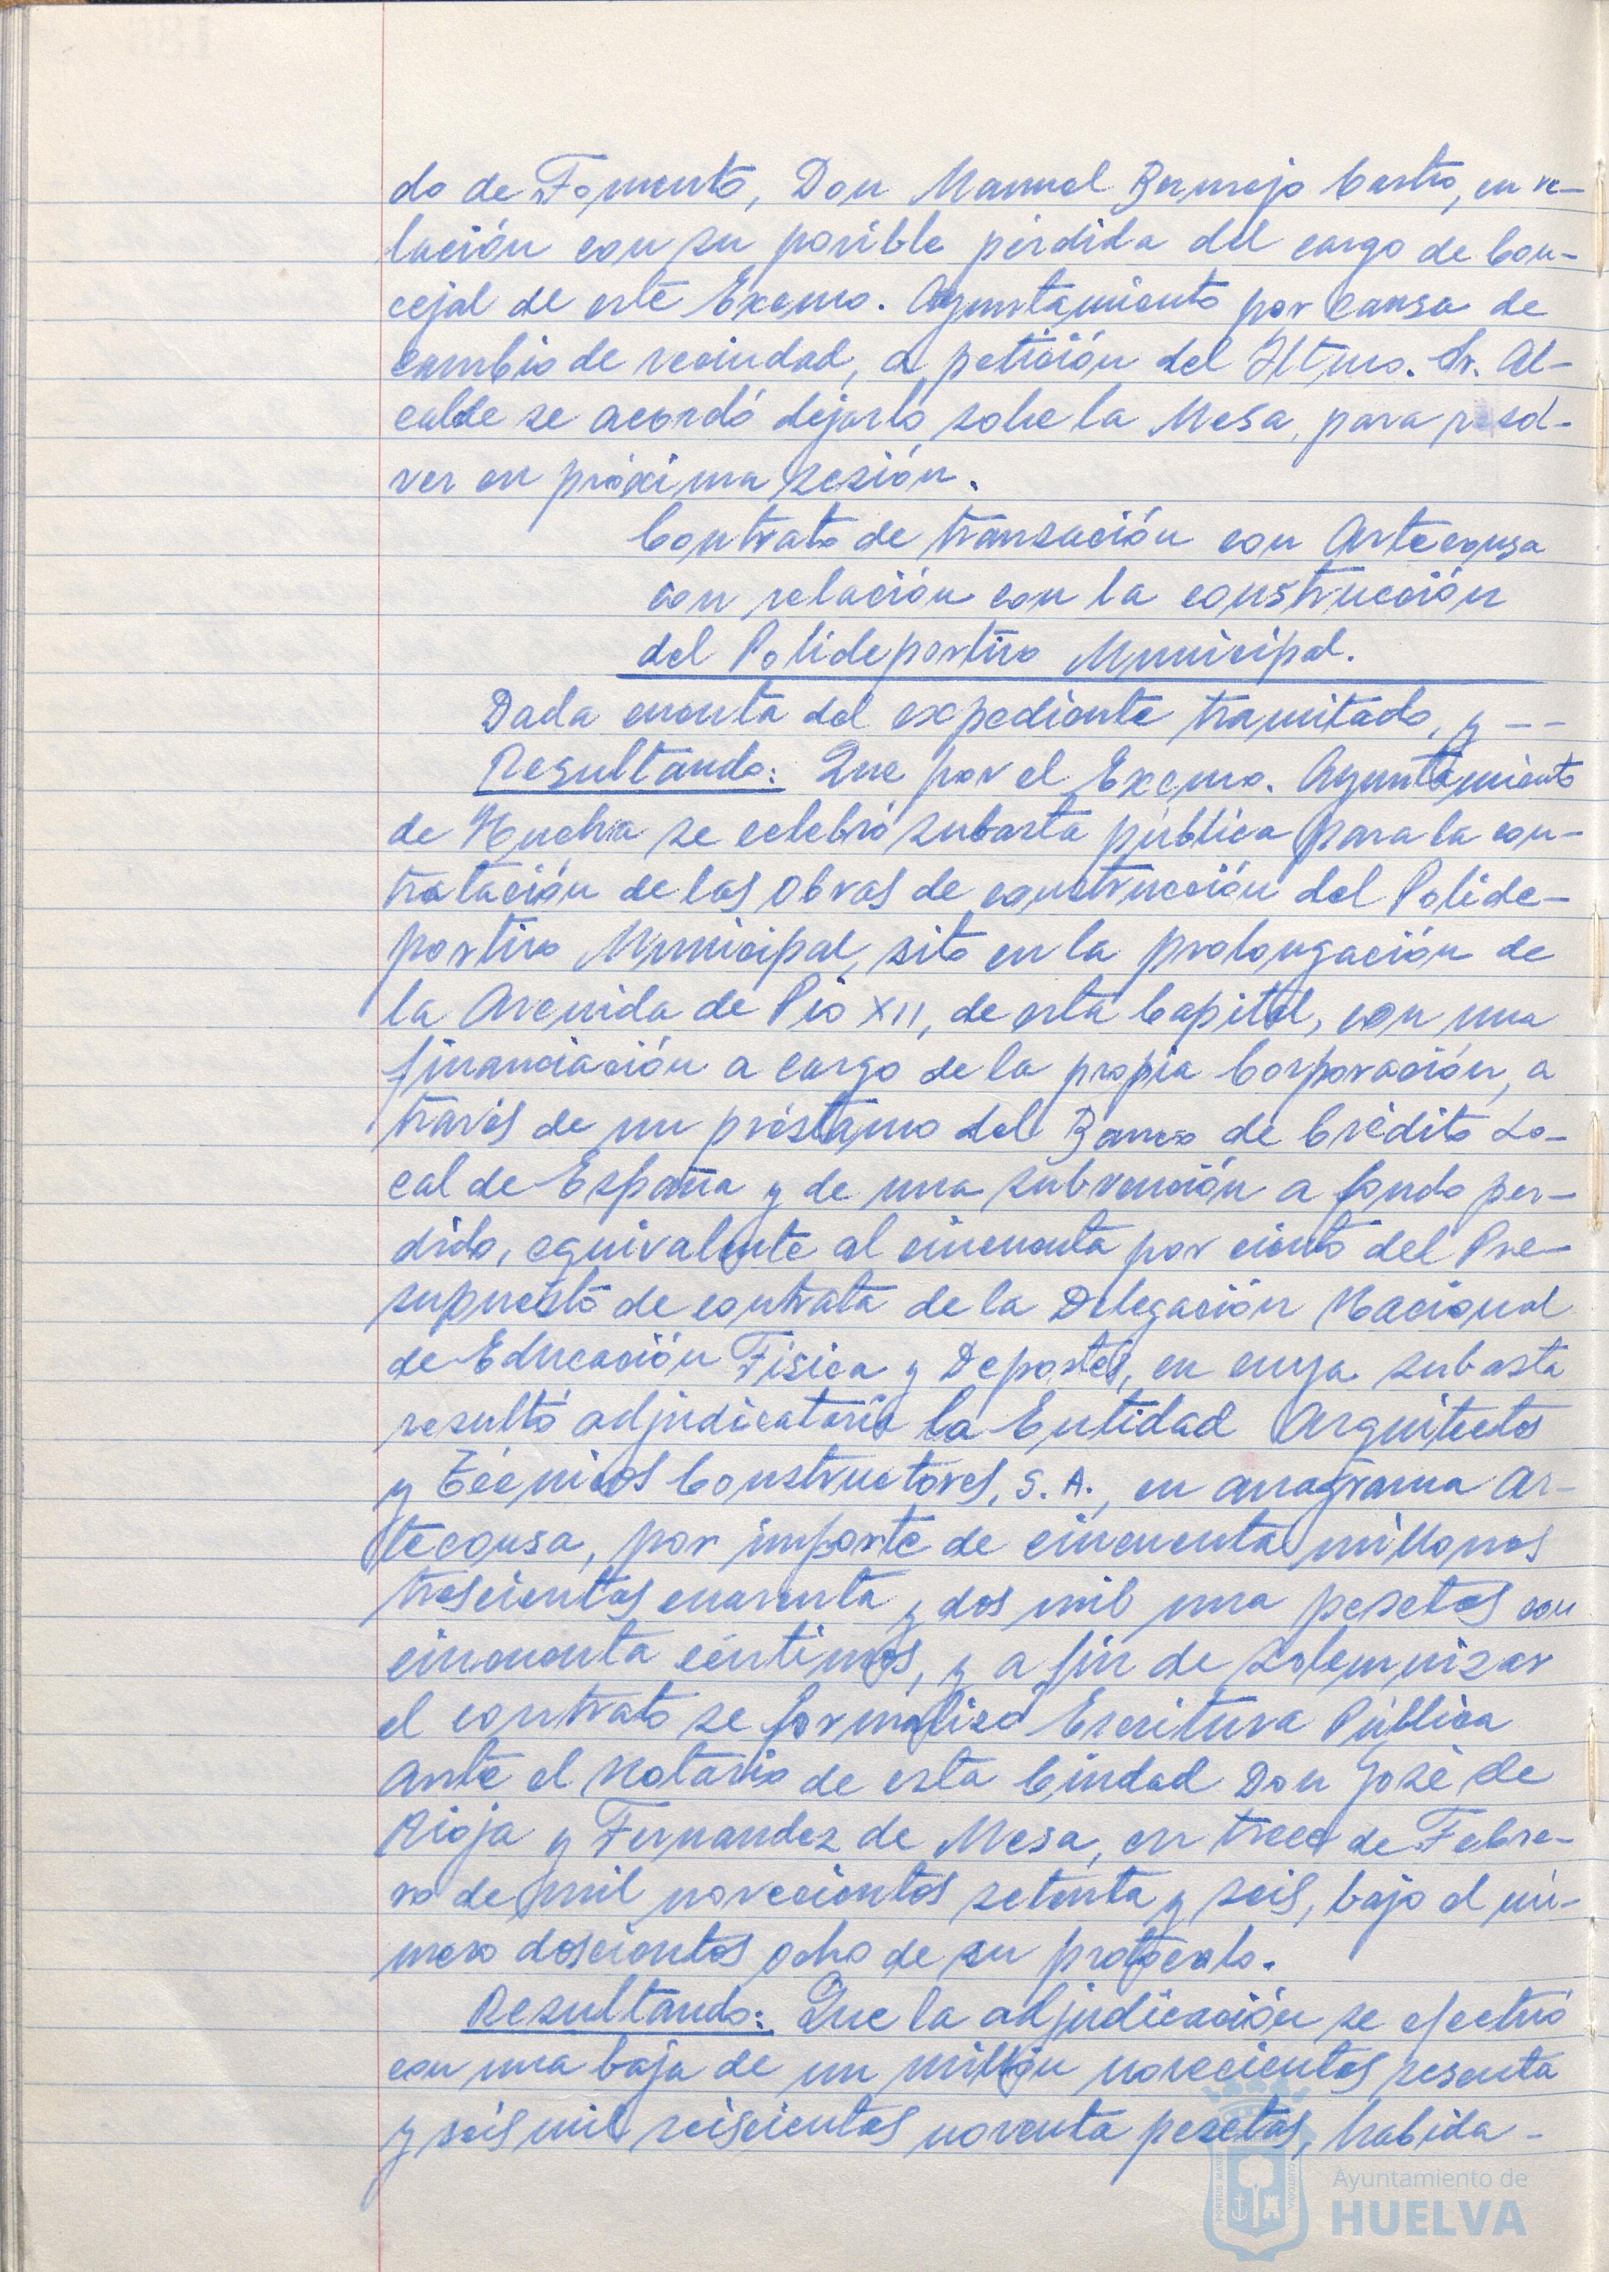 do de Fomento, Don Manuel Bermejo Castro, en re-
lación con su posible pérdida del cargo de Con-
cejal de este Excmo. Ayuntamiento por causa de
cambio de vecindad, a petición del Iltmo. Sr. Al-
calde se acordó dejarlo sobre la Mesa, para resol-
ver en próxima sesión.
Contrato de transación con Artecousa
con relación con la construcción
del Polideportivo Municipal.
Dada cuenta del expediente tramitado, y - -
Resultando: Que por el Excmo. Ayuntamiento
de Huelva se celebró subasta pública para la con-
tratación de las obras de construcción del Polide-
portivo Municipal, sito en la prolongación de
la Avenida de Pio XII, de esta Capital, con una
financiación a cargo de la propia Corporación, a
través de un préstamo del Banco de Crédito Lo-
cal de España y de una subvención a fondo per-
dido, equivalente al cincuenta por ciento del Pre-
supuesto de contrata de la Delegación Nacional
de Educación Fisica y Deportes, en cuya subasta
resultó adjudicataria la Entidad Arquitectos
y Técnicos Constructores, S. A., en anagrama Ar-
tecousa, por importe de cincuenta millones
trescientas cuarenta y dos mil una pesetas con
cincuenta céntimos, y a fin de solemnizar
el contrato se formalizó Escritura Pública
ante el Notario de esta Ciudad Don José de
Rioja y Fernandez de Mesa, en trece de Febre-
ro de mil novecientos setenta y seis, bajo el nú-
mero doscientos ocho de su protocolo.
Resultando: Que la adjudicación se efectuó
con una baja de un millón novecientas sesenta
y seis mil seiscientas noventa pesetas, habida -
Ayuntamiento de
HUELVA